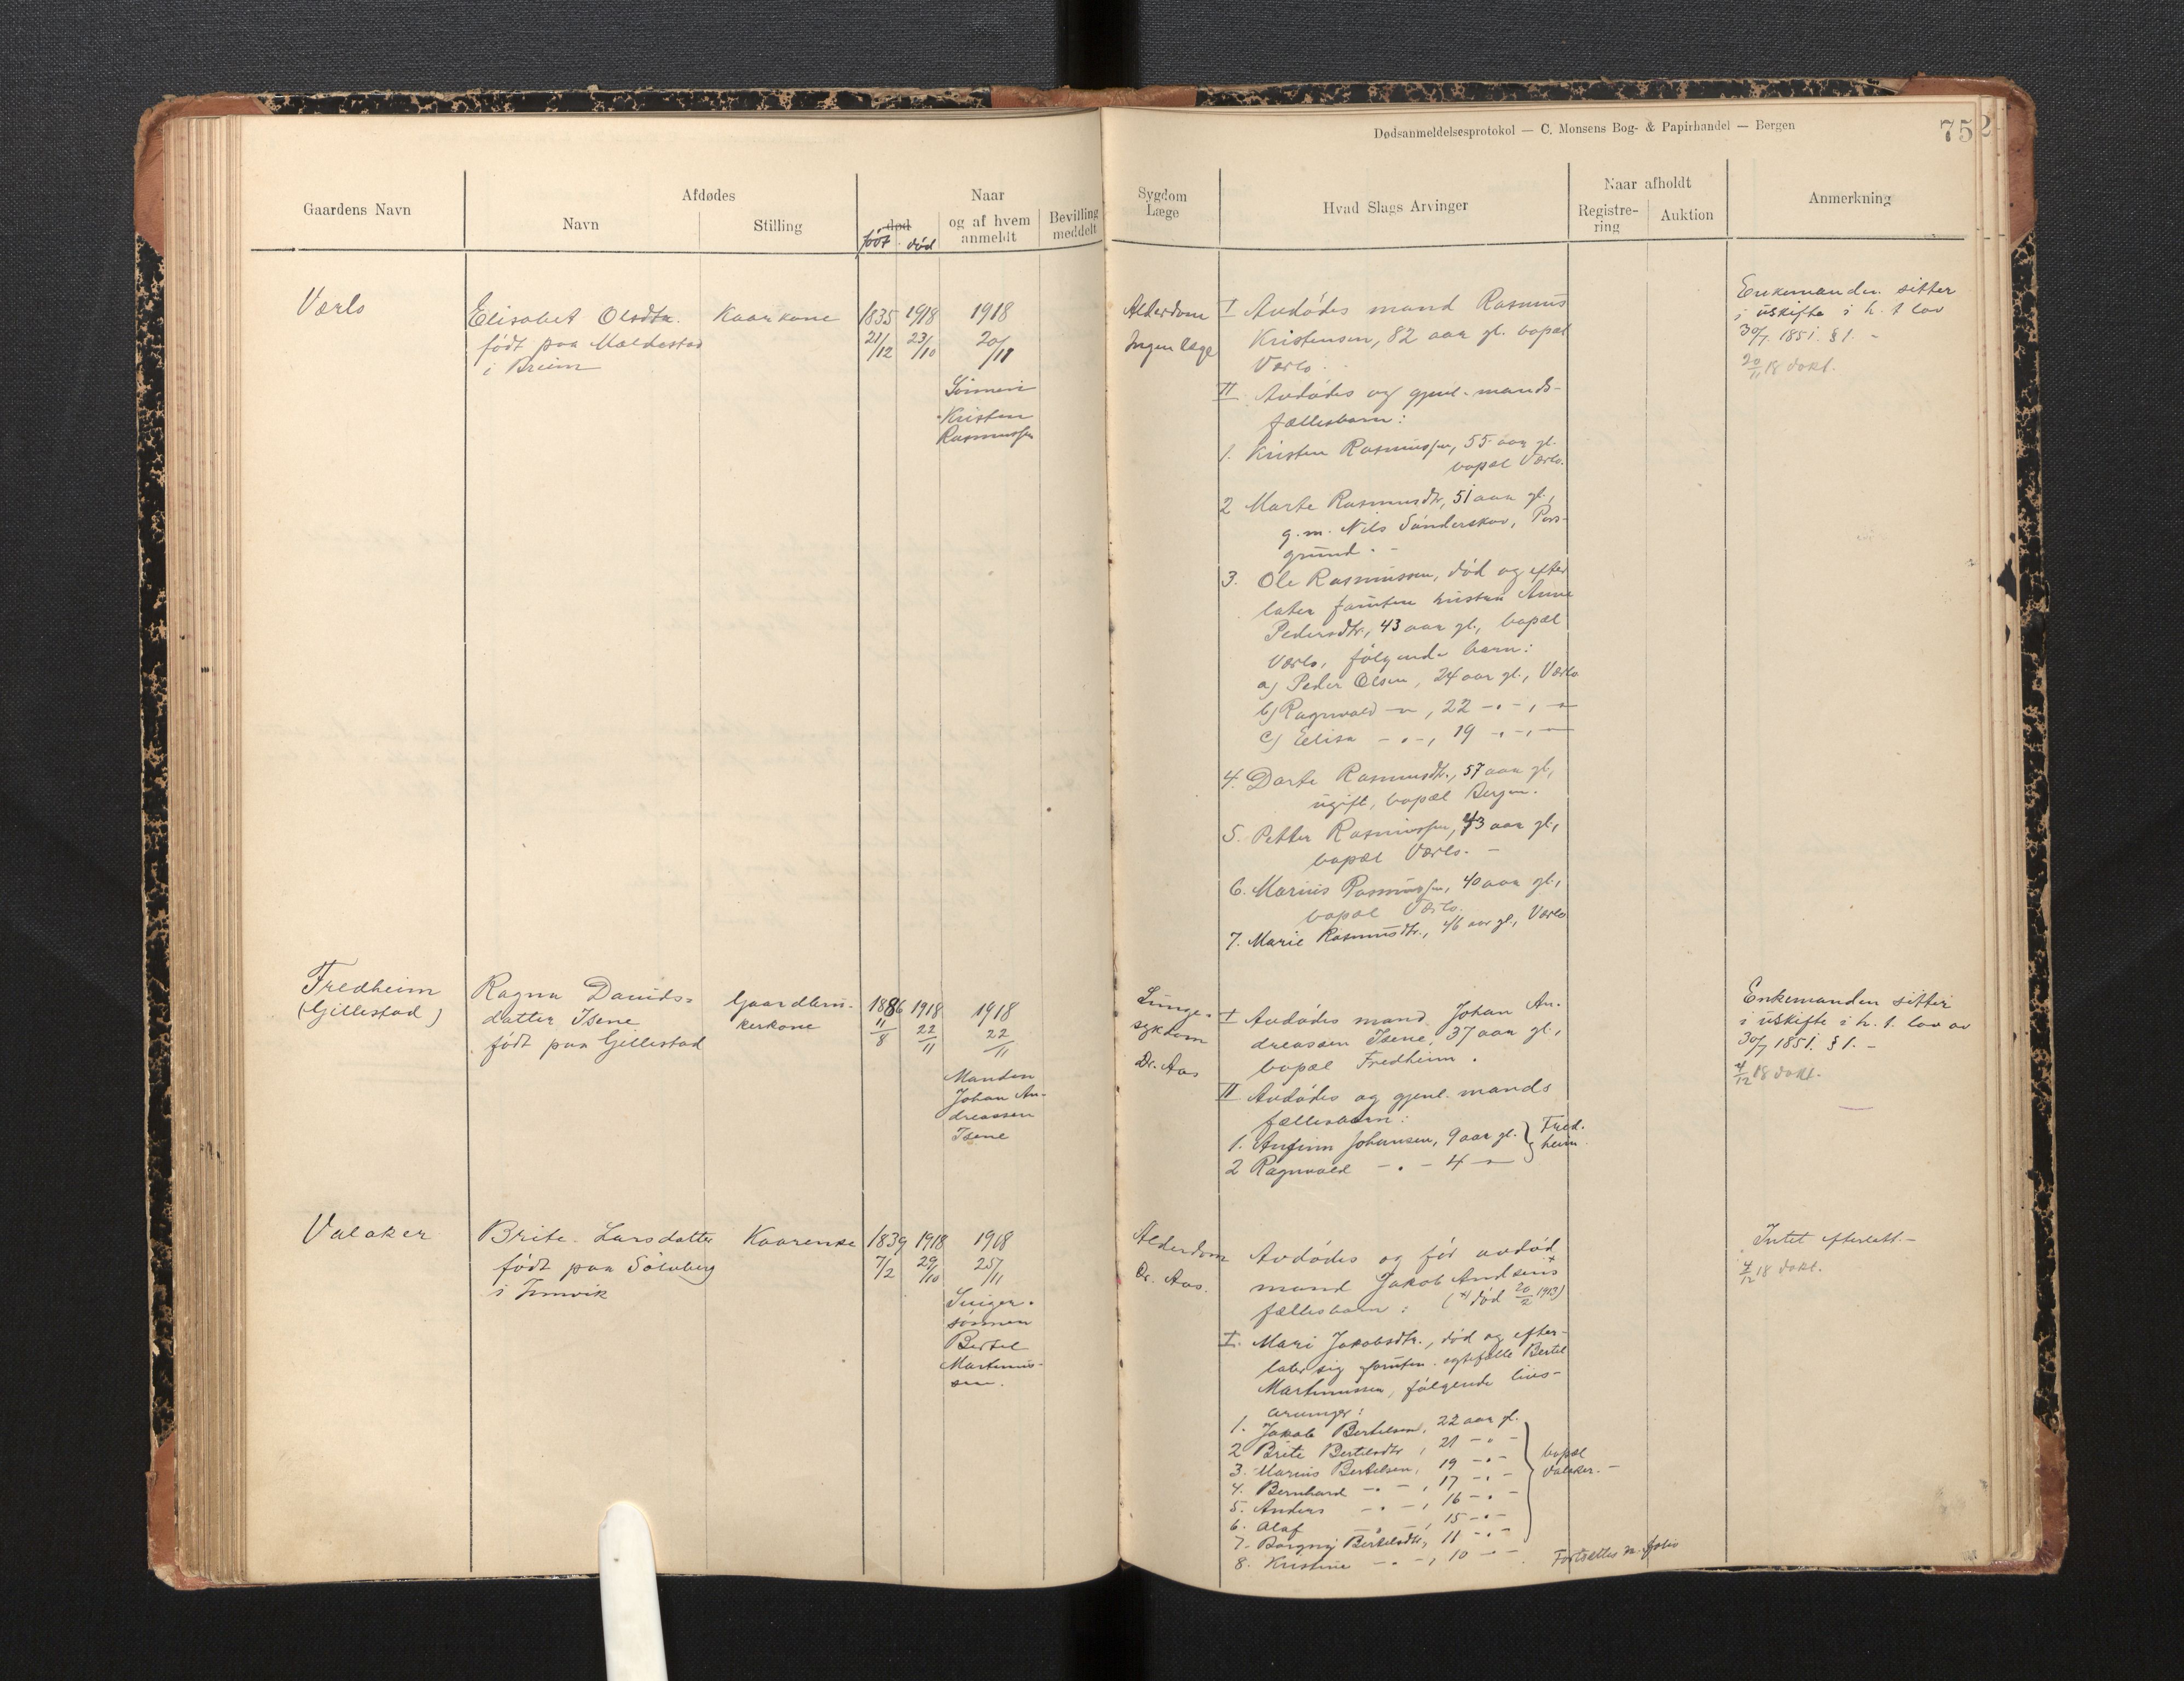 Dødsanmeldelsesprotokol — C. Monsens Bog- & Papirhandel — Bergen
75
Gaardens Navn
Afdødes
Navn
Stilling
Naar
død
født død
og af hvem
anmeldt
Bevilling
meddelt
Sygdom
Læge
Hvad Slags Arvinger
Naar afholdt
Registre-
ring
Auktion
Anmerkning
Værlo
Elisabet Olsdtr.
født paa Mældestad
i Breim
Kaarkone
1835
21/12
1918
23/10
1918
20/11
Sønnen
Kristen
Rasmussen
Alderdom
Ingen læge
I Avdødes mand Rasmus
Kristensen, 82 aar gl. bopæl
Værlo.
II Avdødes og gjenl. mands-
fællesbarn:
1. Kristen Rasmussen, 55 aar gl.
bopæl Værlo.
2 Marte Rasmusdtr, 51 aar gl.,
g.m. Nils Sønderskov, Pors-
grund. -
3. Ole Rasmussen, død og efter
later foruten hustru Anne
Pedersdtr., 43 aar gl., bopæl
Værlo, følgende barn:
a) Peder Olsen, 24 aar gl., Værlo
b) Ragnvald — " —, 22 - " -, —
c) Elisa - " -, 19 - " -, —
4. Dorte Rasmusdtr., 57 aar gl.,
ugift, bopæl Bergen.
5. Petter Rasmussen, 43 aar gl.,
bopæl Værlo. -
6. Marius Rasmussen, 40 aar gl.,
bopæl Værlo.
7. Marie Rasmusdtr., 46 aar gl., Værlo
Enkemanden sitter
i uskifte i h. t. lov
30/7 1851. § 1. -
20/11 18 dokt.
Fredheim
(Gillestad)
Ragna Davids-
datter Isene
født paa Gjillestad
Gaardbru-
kerkone
1886
11/8
1918
22/11
1918
22/11
Manden
Johan An-
dreassen
Isene
Lunge-
sykdom
Dr. Aas
I Avdødes mand Johan An-
dreassen Isene, 37 aar gl.,
bopæl Fredheim.
II Avdødes og gjenl. mands
fællesbarn:
1. Anfinn Johansen, 9 aar gl. } Fred-
2 Ragnvald - " - 4 — } heim
Enkemanden sitter
i uskifte i h. t. lov av
30/7 1851. § 1. -
4/12 18 dokt.
Valaker
Brite Larsdatter
født paa Sølvberg
i Innvik
Kaarenke
1839
7/2
1918
29/10
1918
25/11
Sviger-
sønnen
Bertel
Martinus-
sen.
Alderdom
Dr. Aas.
Avdødes og før avdød
mand Jakob Andsens x
fællesbarn: (x) død 20/2 1913)
I. Mari Jakobsdtr., død og efter-
later sig foruten egtefælle Bertel
Martinussen, følgende livs-
arvinger:
1. Jakob Bertelsen, 22 aar gl.
2 Brite Bertelsdtr, 21 - " -
3. Marius Bertelsen, 19 - " -
4. Bernhard - " -, 17 - " -
5. Anders - " -, 16 - " -
6. Olaf - " -, 15 - " -
7. Borgny Bertelsdtr, 11 - " -
8. Kristine - " -, 10 - " -
bopæl
Valaker. -
Fortsættes n. folio
Intet efterlatt. -
4/12 18 dokt.